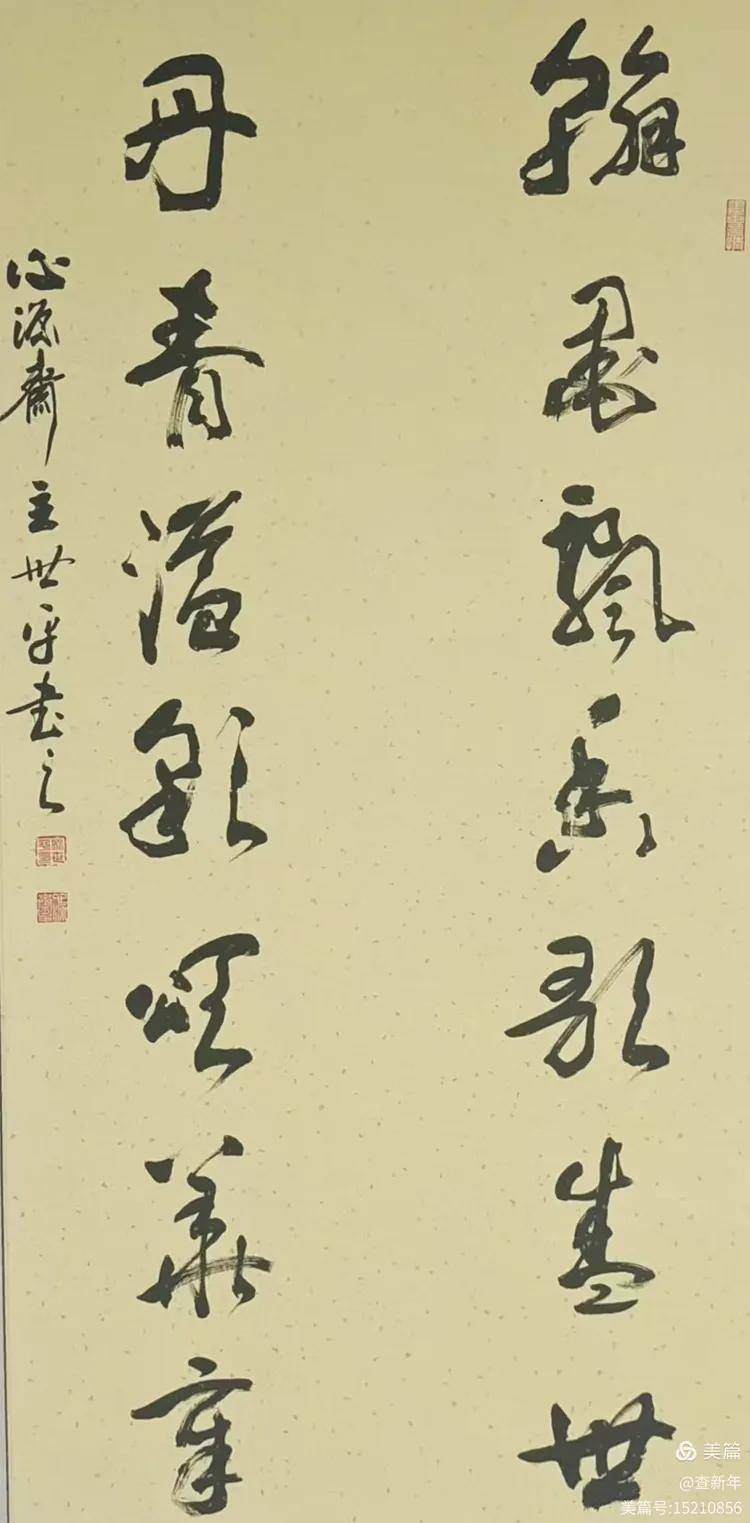 翰墨飄香歌盛世
丹青溢彩華章
源齋主世平书之
美篇
@查新年
美篇号:15210856